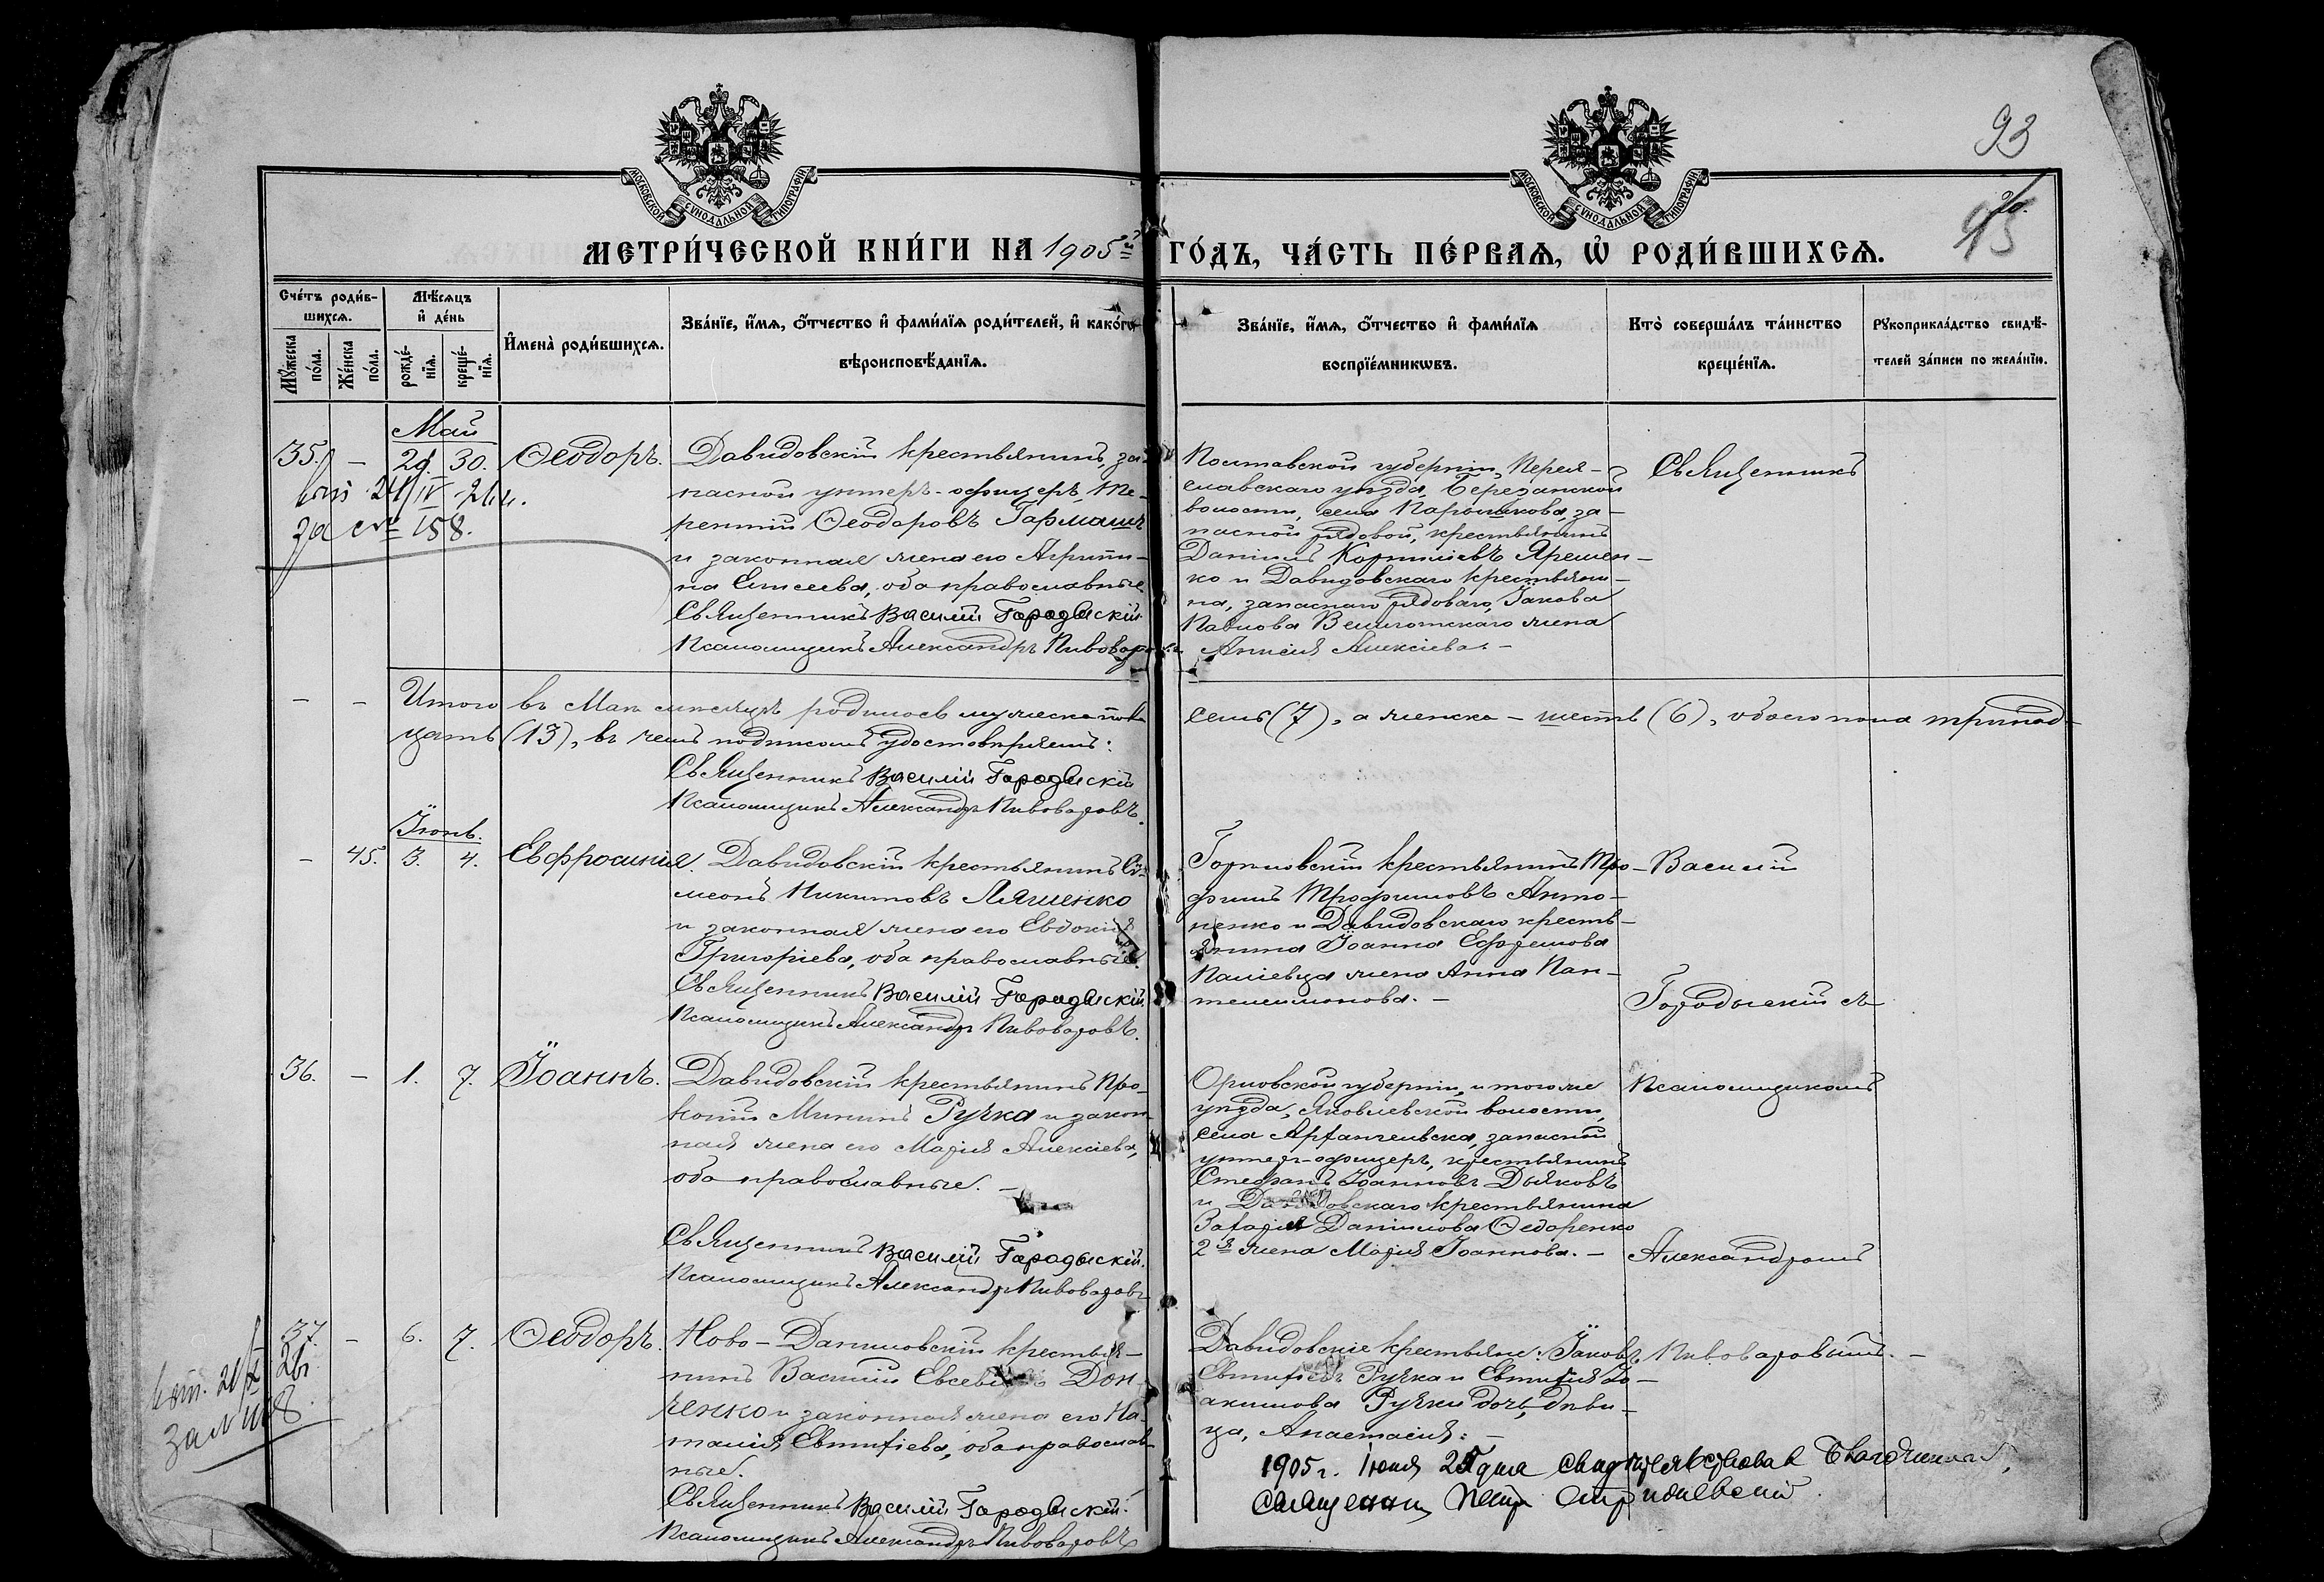 93
95
МОСКОВСКОЙ СѴНОДАЛЬНОЙ ТИПОГРАФІИ
МОСКОВСКОЙ СѴНОДАЛЬНОЙ ТИПОГРАФІИ
МЕТРИ́ЧЕСКОЙ КНИ́ГИ НА 1905й ГО́ДЪ, ЧА́СТЬ ПЕ́РВАѦ, Ѡ҆ РОДИ́ВШИХСѦ.
Сче́тъ роди́в-
шихсѧ.
Мѣ́сѧцъ
и҆ де́нь
И҆мена̀ роди́вшихсѧ.
Зва́нїе, и҆́мѧ, ѻ҆́тчество и҆ фами́лїѧ роди́телей, и҆ како́гѡ
вѣроисповѣ́данїѧ.
Мꙋ́жеска по́ла.
Же́нска по́ла.
рожде́-
нїѧ.
креще́-
нїѧ.
Зва́нїе, и҆́мѧ, ѻ҆́тчество и҆ фами́лїѧ
воспрїе́мникѡвъ.
Кто̀ соверша́лъ та́инство
креще́нїѧ.
Рꙋкоприкла́дство свидѣ́-
телей за́писи по жела́нїю.
Май
35. – 29. 30. Ѳеодоръ.
24/IV
за № 158.
Давидовскій крестьянинъ, за-
пасной унтеръ-офицеръ, Те-
рентій Ѳеодоровъ Гармашъ
и законная жена его Агриппи-
на Елисеева, оба православные
Священникъ Василій Городыскій
Псаломщикъ Александръ Пивоваровъ
Полтавской губерніи, Перея-
славскаго уѣзда, Березанской
волости, села Парышкова, за-
пасной рядовой, крестьянинъ
Даніилъ Корниліевъ Яремен-
ко и Давидовскаго крестьяни-
на, запаснаго рядоваго, Іакова
Павлова Велиготскаго жена
Анисія Алексіева. –
Священникъ
– – Итого въ Маѣ мѣсяцѣ родилось мужеска пола семь (7), а женска – шесть (6), обоего пола тринад-
цать (13), въ чемъ подписомъ удостовѣряемъ:
Священникъ Василій Городыскій
Псаломщикъ Александръ Пивоваровъ.
Іюнь.
– 45. 3. 4. Евфросинія.
Давидовскій крестьянинъ Си-
меонъ Никитовъ Ляшенко
и законная жена его Евдокія
Григоріева, оба православные.
Священникъ Василій Городыскій
Псаломщикъ Александръ Пивоваровъ.
крестьянинъ Тро-
фимъ Трофимовъ Анто-
ненко и Давидовскаго кресть-
янина Іоанна Ефремова
Паліевца жена Анна Пан-
телеимонова. –
Василій
Городыскій съ
36. – 1. 7. Іоаннъ.
Давидовскій крестьянинъ Про-
копій Мининъ Ручка и закон-
ная жена его Марія Алексіева,
оба православные. –
Священникъ Василій Городыскій.
Псаломщикъ Александръ Пивоваровъ
Орловской губерніи, и того же
уѣзда, Яковлевской волости,
села Архангельска, запасной
унтеръ-офицеръ, крестьянинъ
Стефанъ Іоанновъ Дьяковъ
и Давидовскаго крестьянина
Захарія Даніилова Ѳедоренко
2я жена Марія Іоаннова. –
Псаломщикомъ
Александромъ
37. – 6. 7. Ѳеодоръ.
Ново-Даниловскій крестья-
нинъ Василій Евсевіевъ Дон-
ченко и законная жена его На-
талія Евтихіева, оба православ-
ные.
Священникъ Василій Городыскій.
Псаломщикъ Александръ Пивоваровъ
Давидовскіе крестьяне: Іаковъ
Евтихіевъ Ручка и Евтихія Іо-
акимова Ручки дочь, дѣви-
ца, Анастасія: –
Пивоваровымъ. –
1905 г. Іюня дня свидѣтельствовалъ Благочинный,
Священникъ Петръ